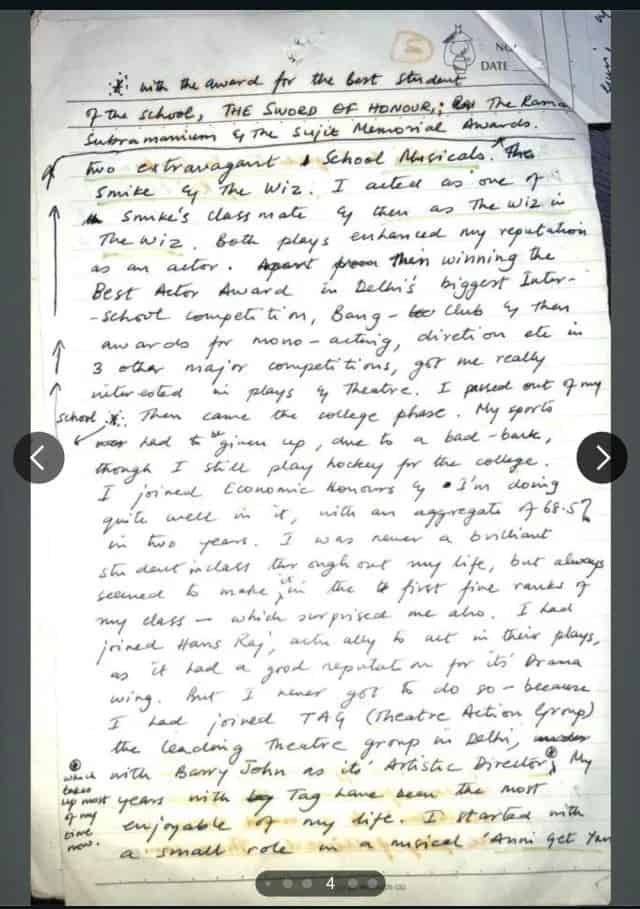 5
NO.
DATE
* with the award for the best student
of the school, THE SWORD OF HONOUR; The Rama
Subramanium & The Sujit Memorial Awards.
two extravagant School Musicals. * The
Smike & The Wiz. I acted as one of
Smike's classmate & then as The Wiz in
The Wiz. Both plays enhanced my reputation
as an actor. Apart from then winning the
Best Actor Award in Delhi's biggest Inter-
-School competition, Bang- Club & then
awards for mono-acting, diretion etc in
3 other major competitions, got me really
interested in plays & Theatre. I passed out of my
school *. Then came the college phase. My sports
had to be given up, due to a bad-back,
though I still play hockey for the college.
I joined Economic Honours & I'm doing
quite well in it, with an aggregate of 68.5%
in two years. I was never a brilliant
student in class throughout my life, but always
seemed to make it in the first five ranks of
my class – which surprised me also. I had
joined Hans Raj, actually to act in their plays,
as it had a good reputation for its' Drama
wing. But I never got to do so – because
I had joined TAG (Theatre Action Group)
the leading Theatre group in Delhi,
with Barry John as its' Artistic Director, My
which
takes
up most
of my
time
now.
years with Tag have been the most
enjoyable of my life. I started with
a small role in a musical 'Anni Get Your
4